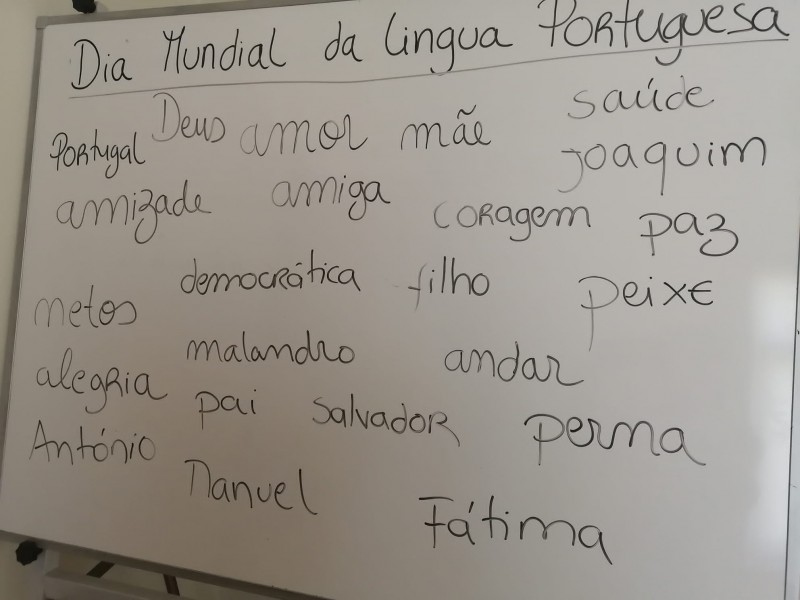 Dia Mundial da Língua Portuguesa
Portugal Deus amor mãe saúde
amizade amiga coragem paz joaquim
netos democrática filho peixe
alegria malandro andar
António pai Salvador perna
Manuel Fátima